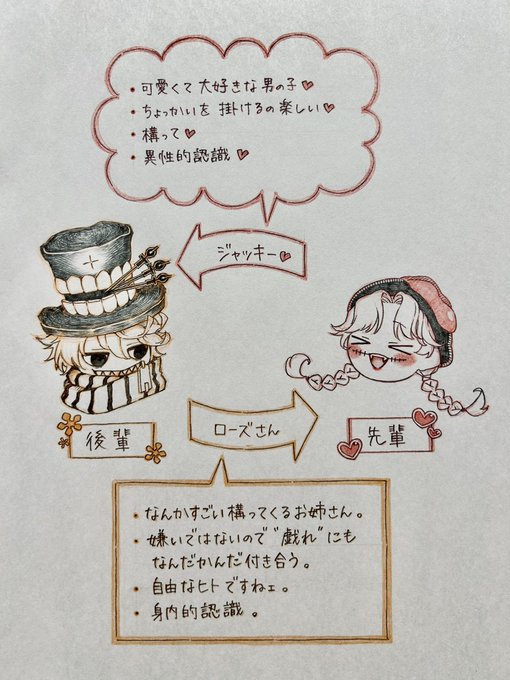 ・可愛くて大好きな男の子♥
・ちょっかいを掛けるの楽しい♥
・構って♥
・異性的認識♥
ジャッキー♥
後輩
ローズさん
先輩
・なんかすごい構ってくるお姉さん。
・嫌いではないので“戯れ”にも
なんだかんだ付き合う。
・自由なヒトですねェ。
・身内的認識。